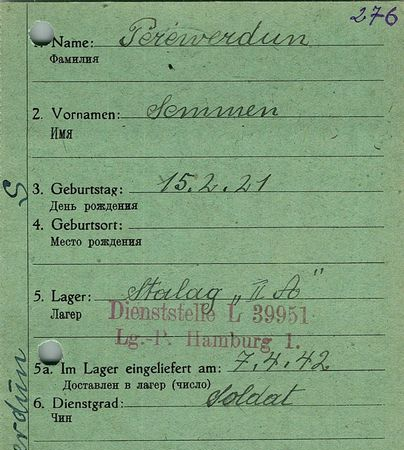 276
1. Name: Perewerdun
Фамилия
2. Vornamen: Semmen
Имя
3. Geburtstag: 15.2.21
День рождения
4. Geburtsort:
Место рождения
5. Lager: Stalag „II A"
Лагер
Dienststelle L 39951
Lg.-P. Hamburg 1.
5a. Im Lager eingeliefert am: 7.4.42
Доставлен в лагер (число)
6. Dienstgrad: Soldat
Чин